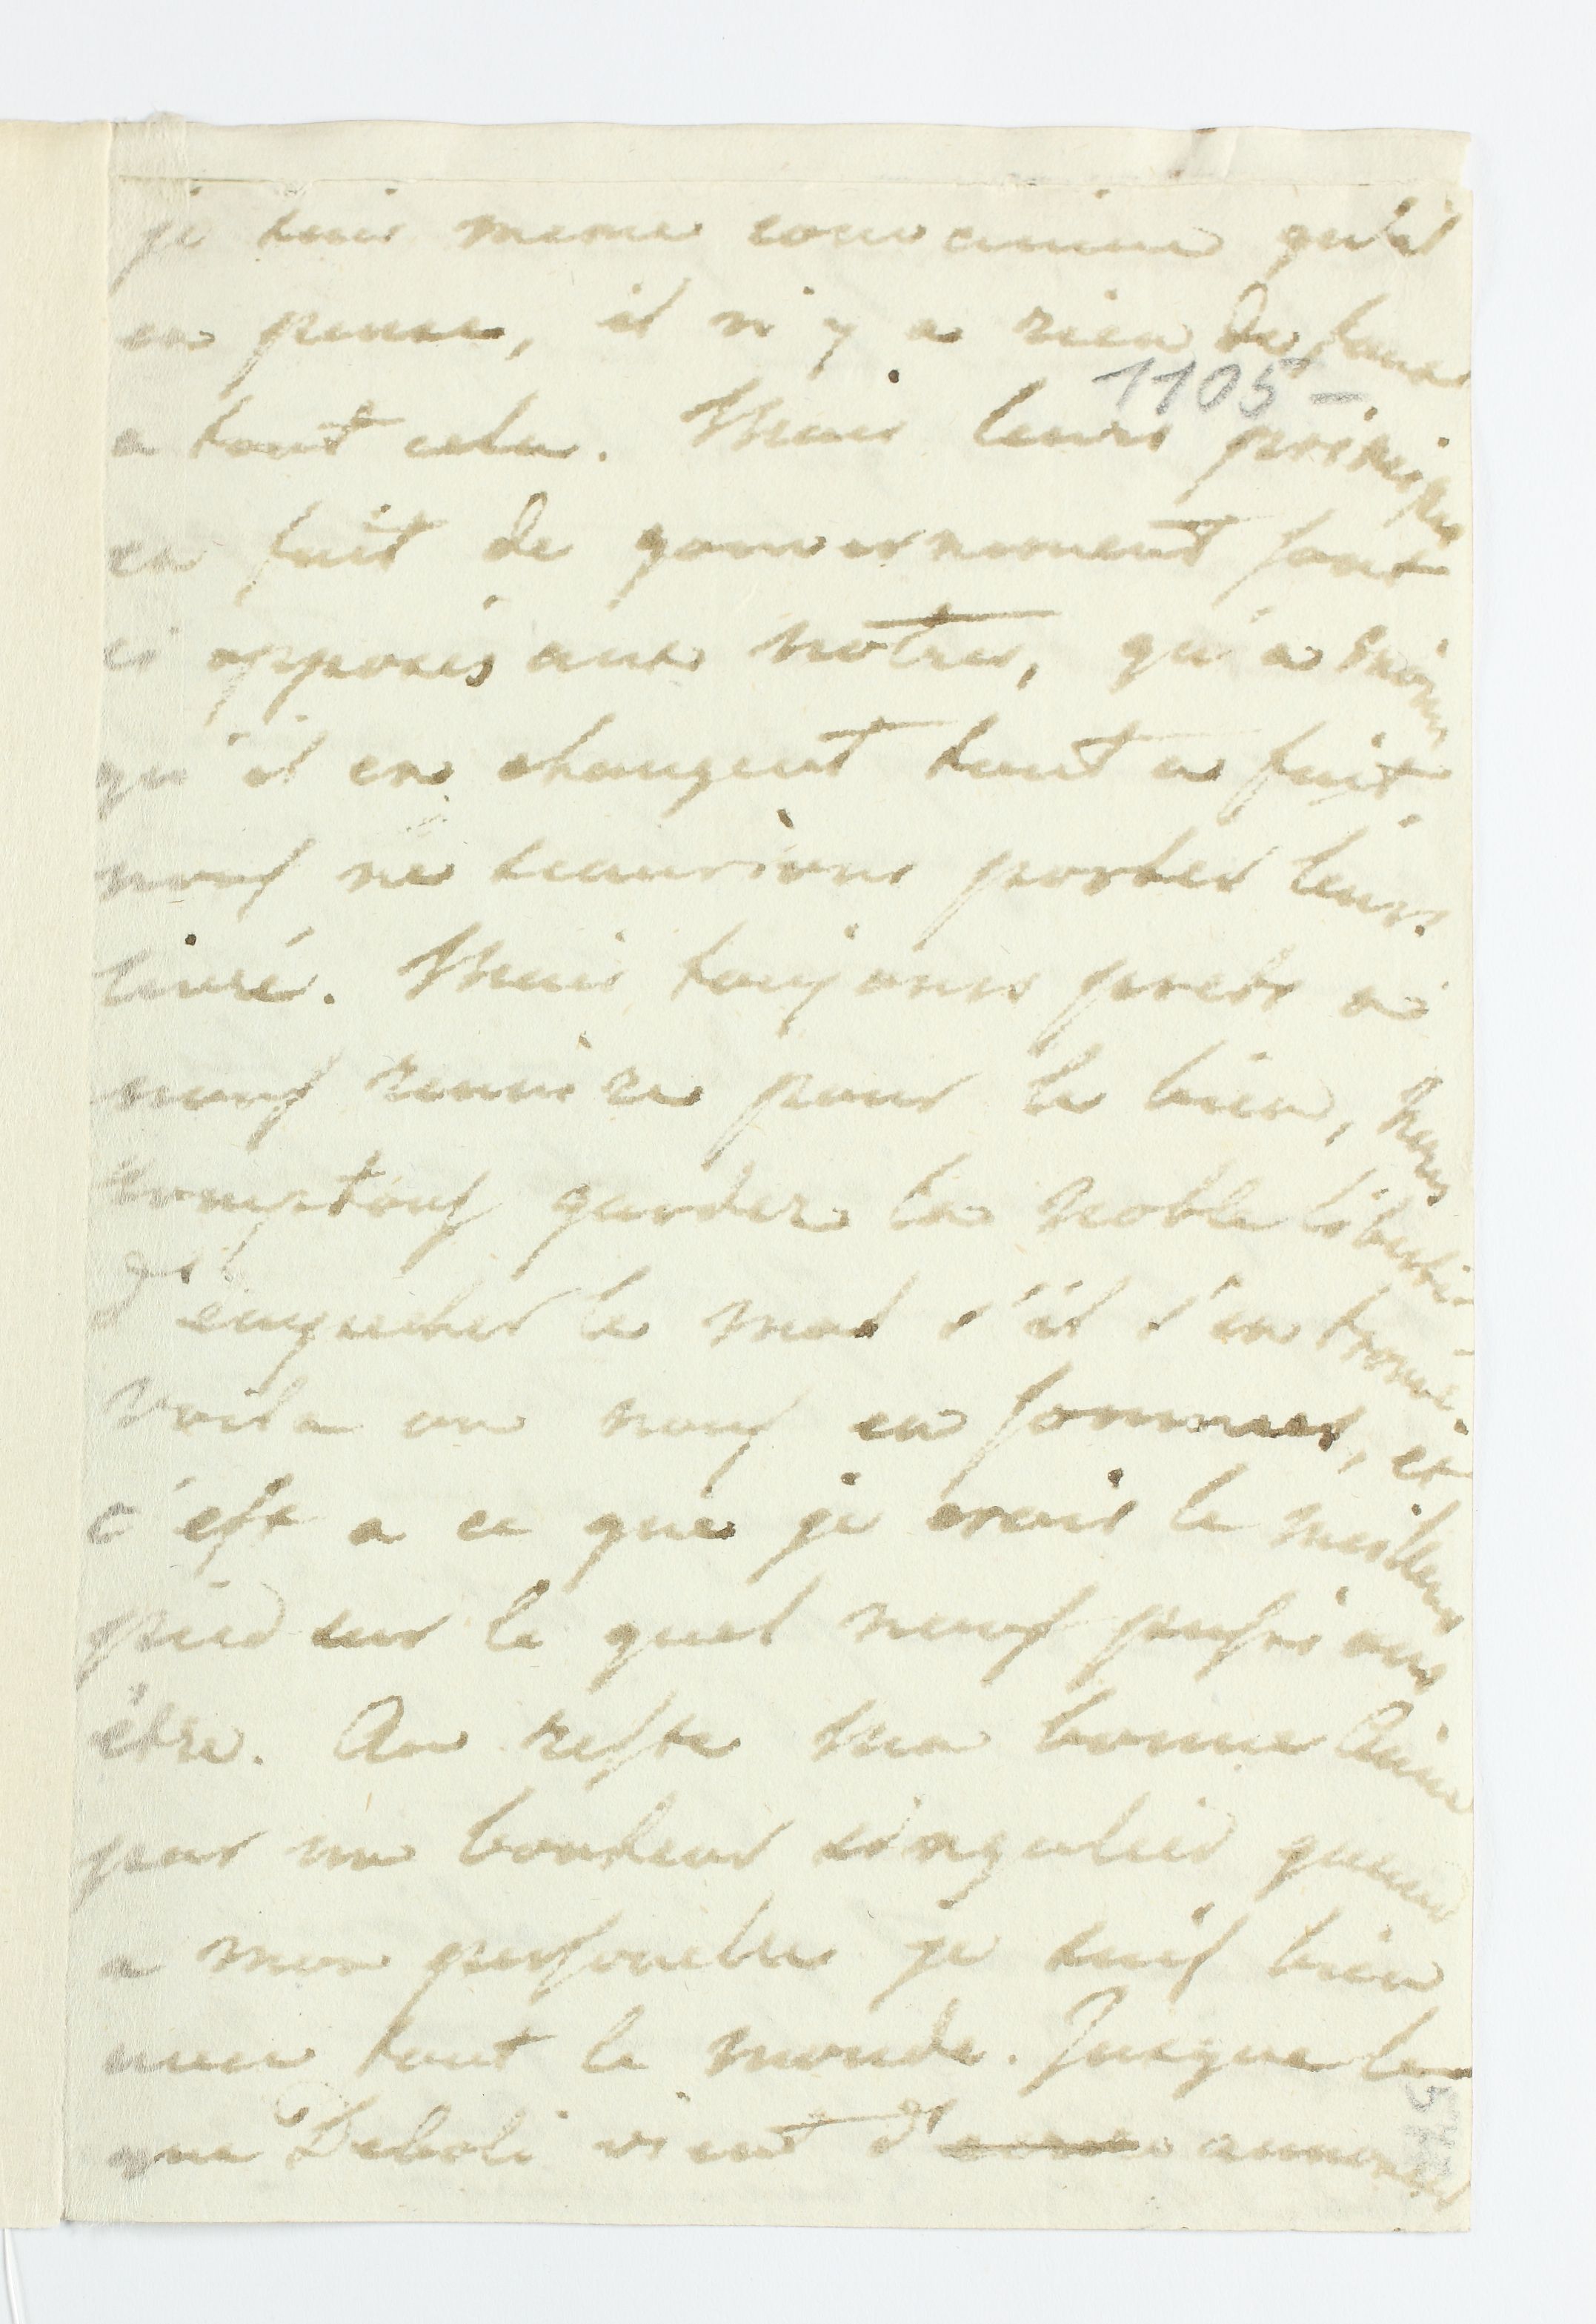 je suis meme convaincue qu'il
en pense, il n'y a rien de faux
1105 -
a tout cela. Mais leurs principes
en fait de gouvernement sont
si opposés aux notres, qu'a moins
qu'il en changent tout a fait
nous ne scaurions porter leurs
livré. Mais toujours prets a
nous reunire pour le bien, nous
comptons garder la noble liberté
d'empecher le mal s'il s'en trouve.
Voila ou nous en sommes, et
c'est a ce que je crois le meilleur
pied sur le quel nous pussions
être. Au reste ma bonne Amie
par un bonheur singulier quand
a mon personelle je suis bien
avec tout le monde. Jusque la
que Deboli vient d' annoncer